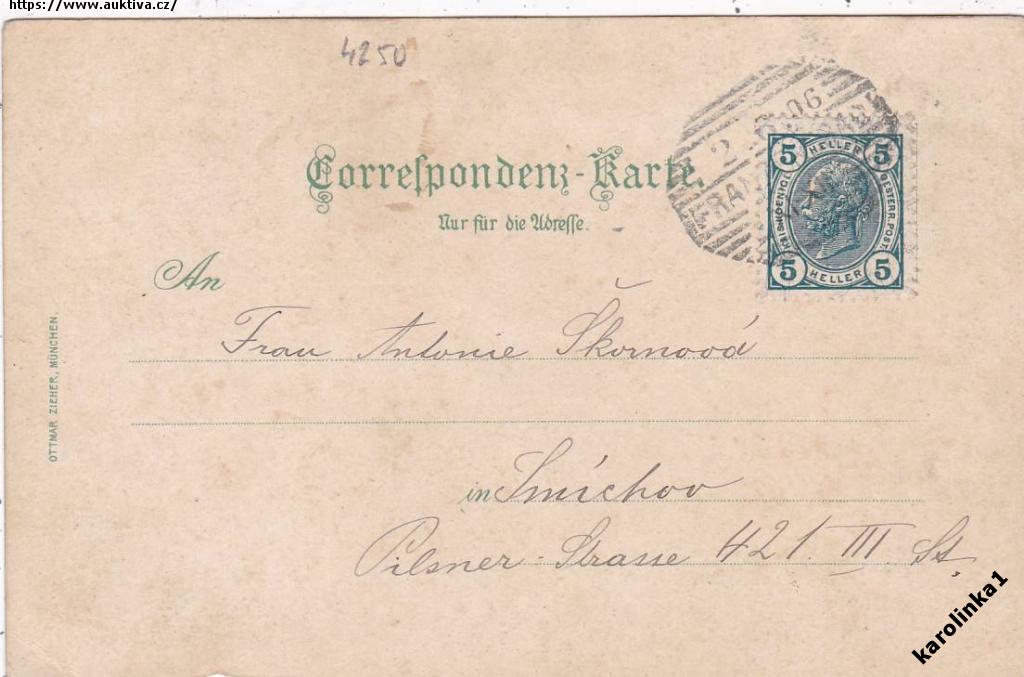 https://www.auktiva.cz/
4250
Correspondenz-Karte.
Nur für die Adresse.
2 06
FRAN
5 HELLER 5
KAIS.KOENIGL. OESTERR.POST
5 HELLER 5
An
Frau Antonie Škornová
in Smíchov
Pilsner-Strasse 421. III St.
OTTMAR ZIEHER, MÜNCHEN.
karolinka1